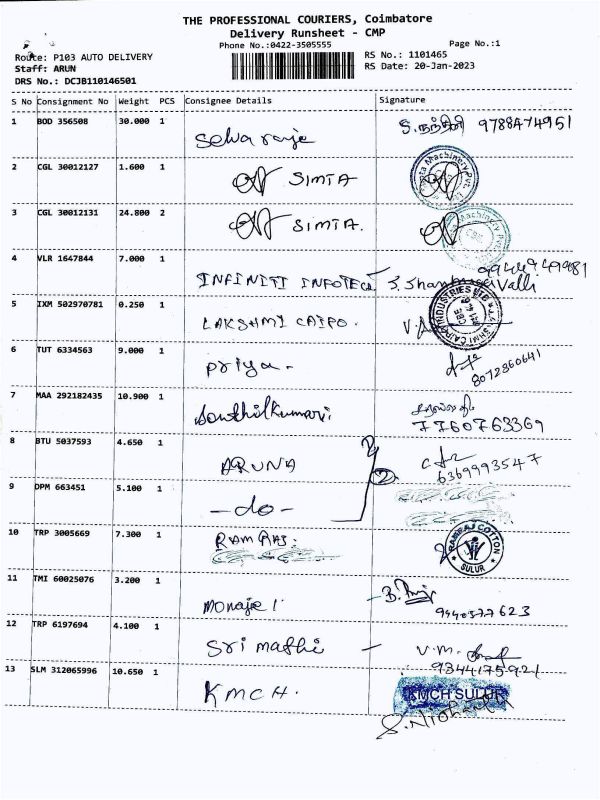 THE PROFESSIONAL COURIERS, Coimbatore
Delivery Runsheet - CMP
Phone No.:0422-3505555
Page No.:1
Route: P103 AUTO DELIVERY
RS No.: 1101465
Staff: ARUN
RS Date: 20-Jan-2023
DRS No.: DCJB110146501
S No Consignment No Weight PCS Consignee Details Signature
1 BOD 356508 30.000 1 Selva raje 9788474951
2 CGL 30012127 1.600 1 SIMTA
3 CGL 30012131 24.800 2 SIMTA.
4 VLR 1647844 7.000 1 INFINITI INFOTECH
5 IXM 502970781 0.250 1 LAKSHMI CAIPO.
6 TUT 6334563 9.000 1 Priya - 8072860641
7 MAA 292182435 10.900 1 Senthilkumari 7760763369
8 BTU 5037593 4.650 1 ARUNA 2 6369993547
9 DPM 663451 5.100 1 -do-
10 TRP 3005669 7.300 1 RAMRAJ. RAMRAJ COTTON SULUR
11 TMI 60025076 3.200 1 9940577623
12 TRP 6197694 4.100 1 Sri mathi - V.M. 9344175921
13 SLM 312065996 10.650 1 KMCH. KMCH SULUR